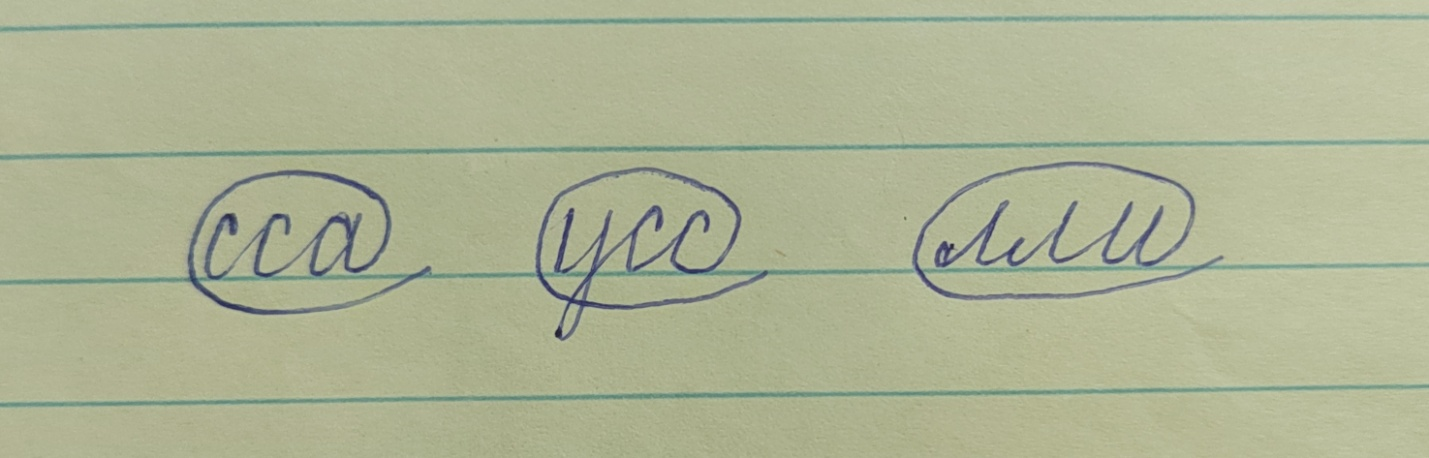 сса усс лли